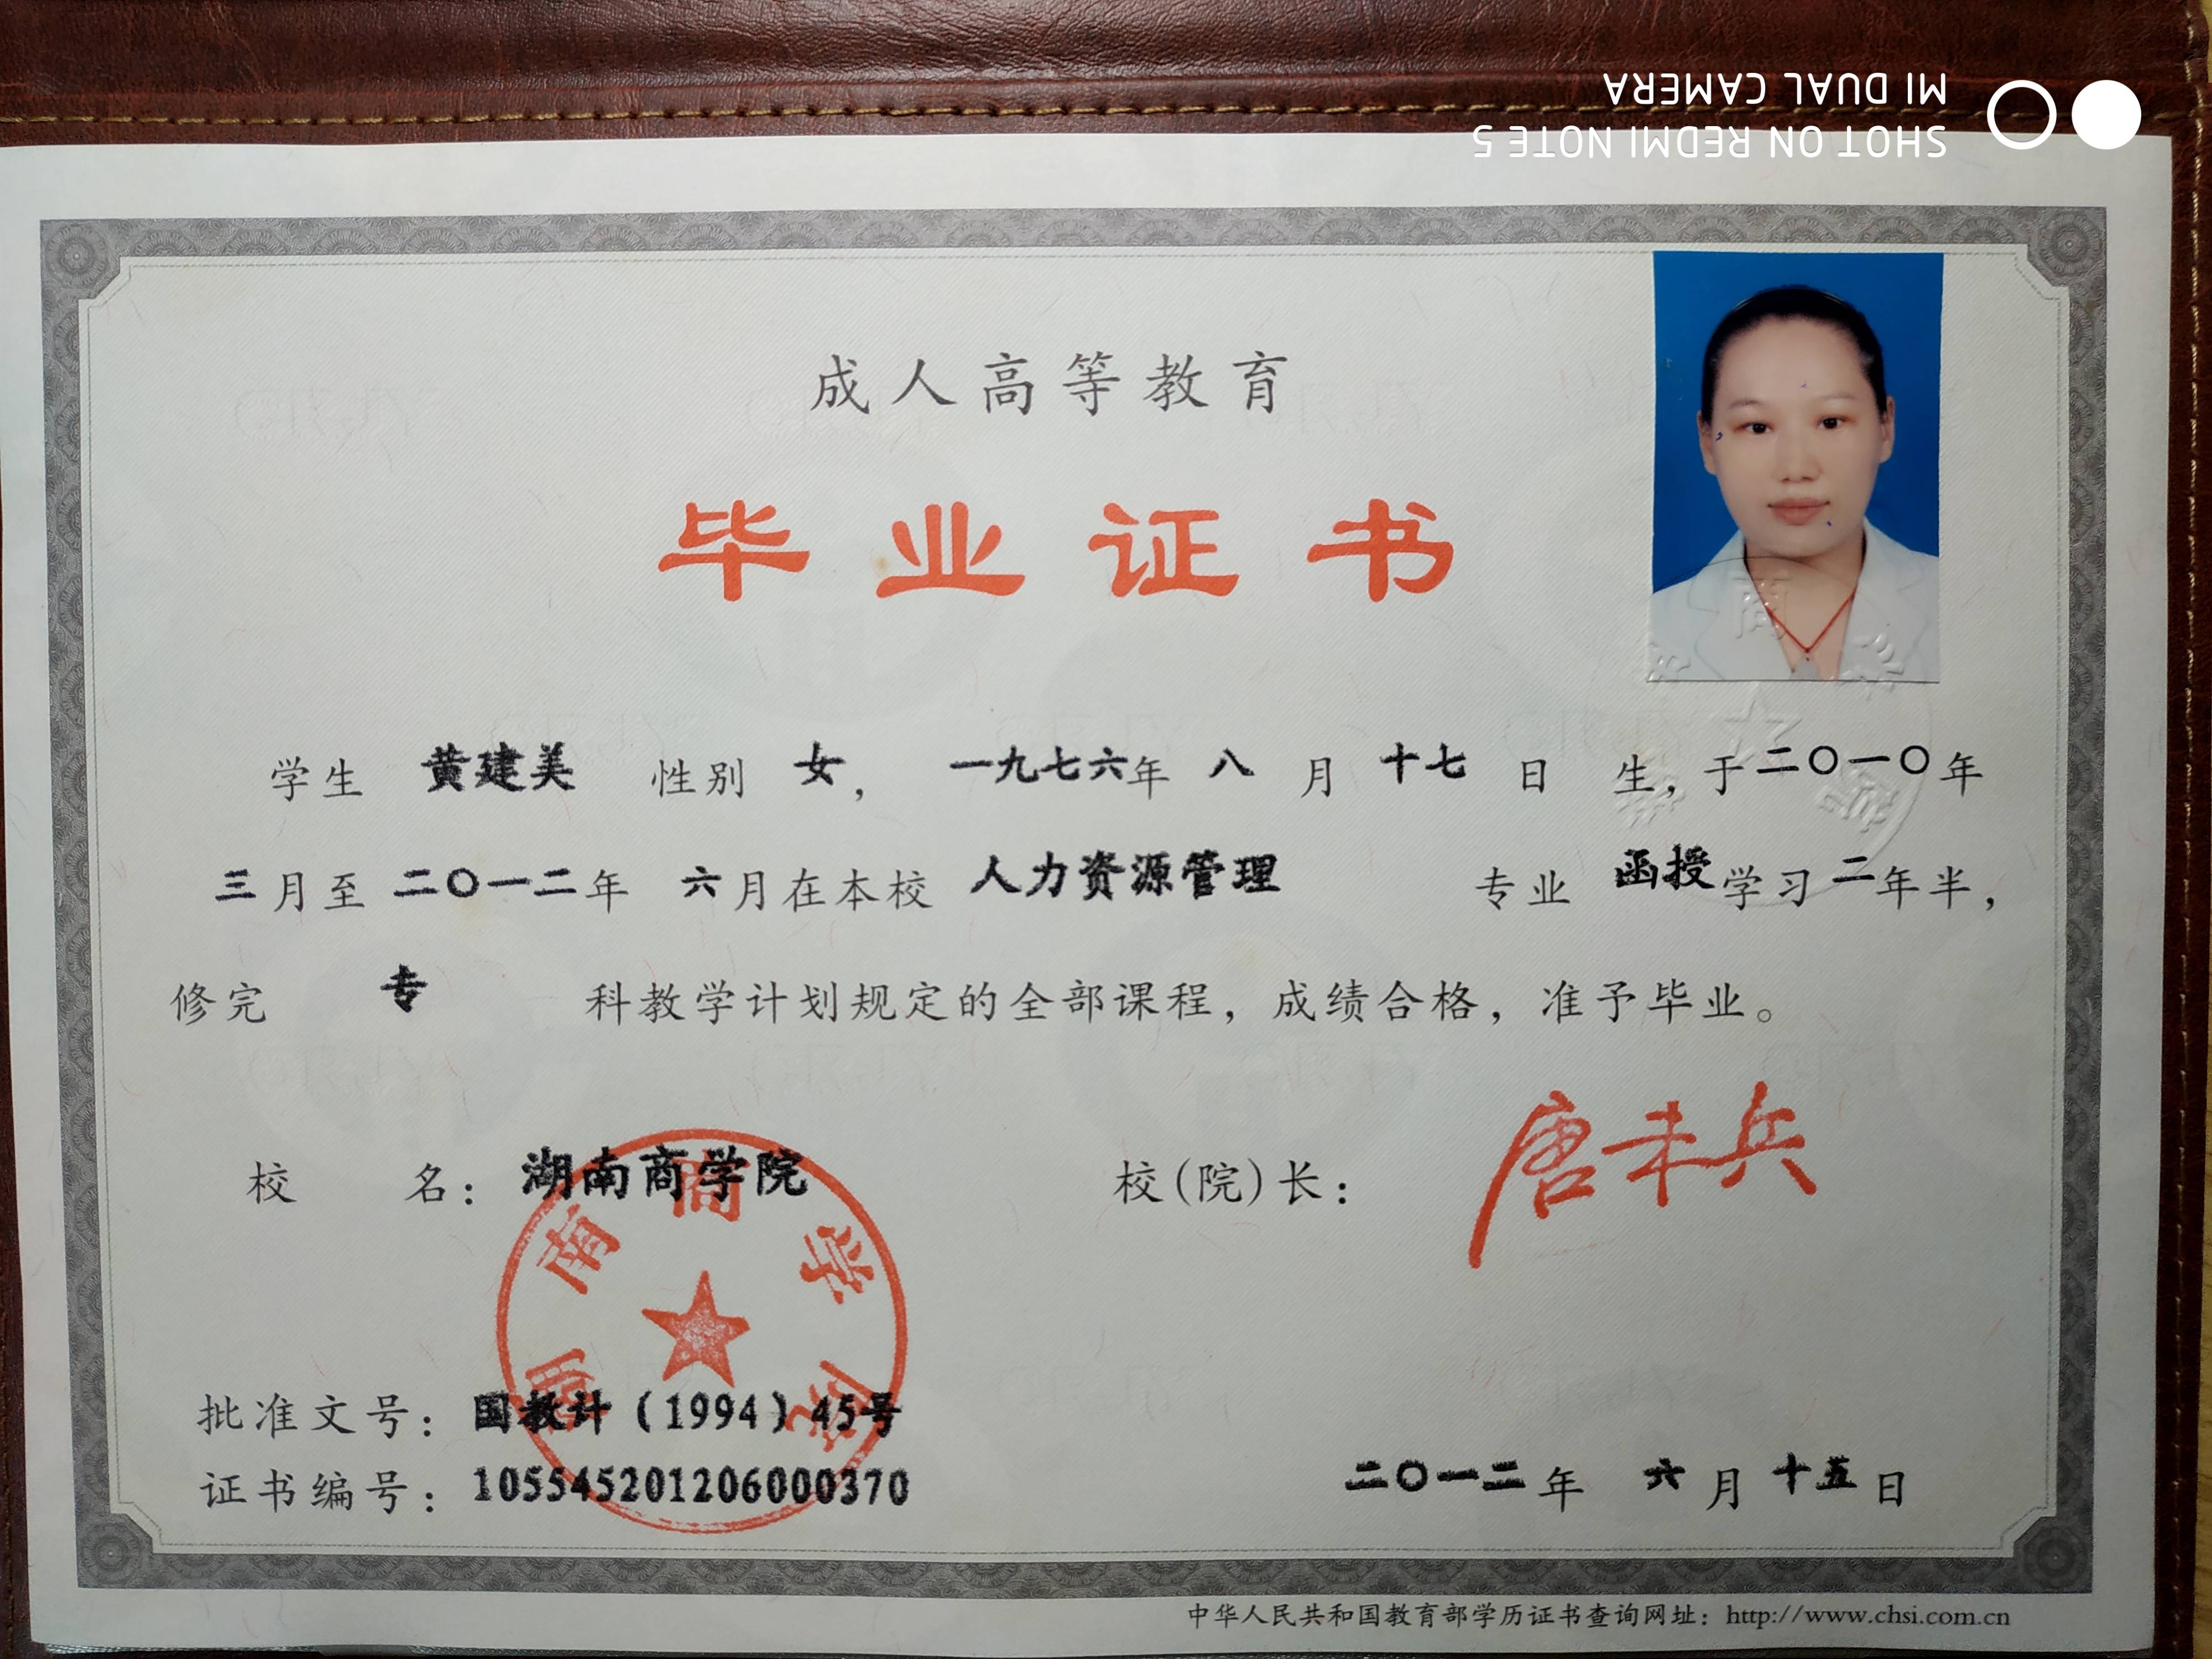 SHOT ON REDMI NOTE 5
MI DUAL CAMERA
成人高等教育
毕业证书
学生 黄建美 性别 女， 一九七六年 八 月 十七 日 生，于二〇一〇年
三月至 二〇一二年 六月在本校 人力资源管理 专业 函授学习 二年半，
修完 专 科教学计划规定的全部课程，成绩合格，准予毕业。
校 名：湖南商学院 校(院)长：唐未兵
湖南商学院
批准文号：国教计（1994）45号
证书编号：105545201206000370
二〇一二年 六月十五日
中华人民共和国教育部学历证书查询网址：http://www.chsi.com.cn